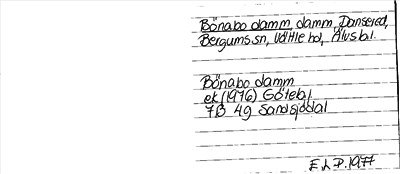 Bönabo damm, damm, Dansered,
Bergums sn, Vättle hd, Älvsb l.
Bönabo damm
ek (1976) Göteb.
7B 4g Sandsjödal
E L P. 1977